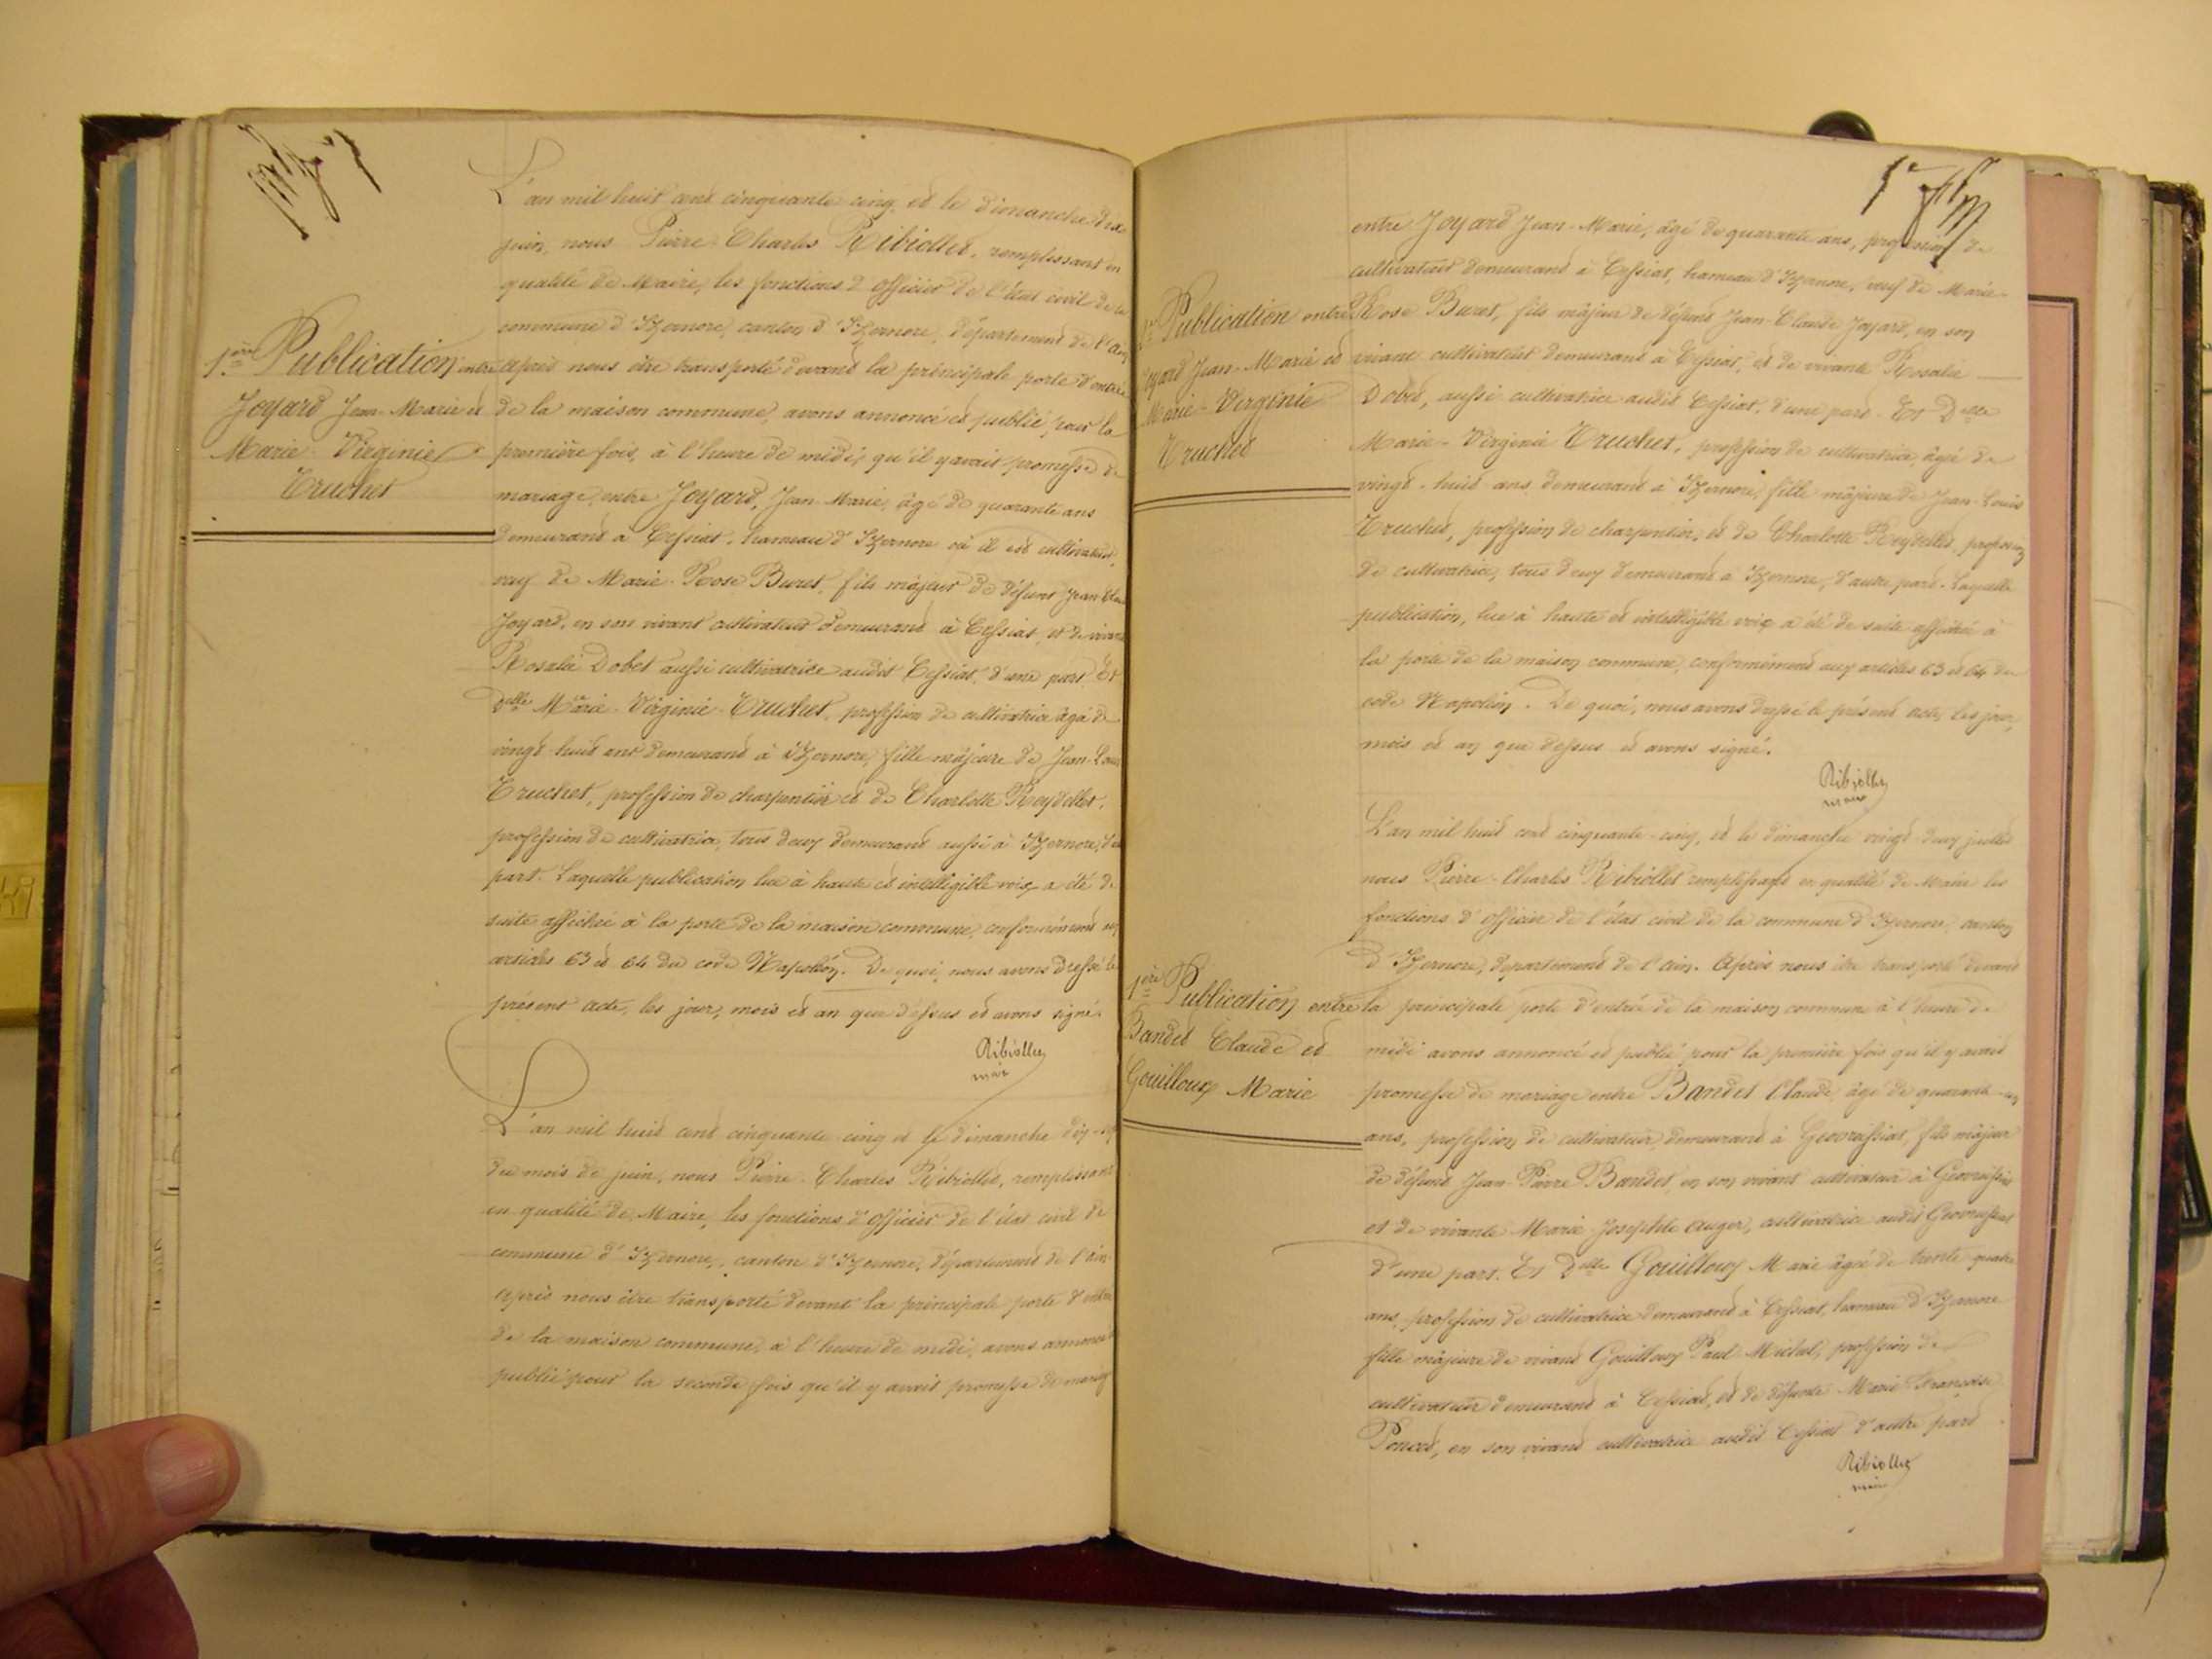 1ère Publication entre
Joyard Jean-Marie et
Marie Virginie
Truchet
L'an mil huit cent cinquante cinq et le dimanche dix
juin, nous Pierre Charles Ribiollet, remplissant en
qualité de Maire, les fonctions d'officier de l'état civil de la
commune d'Izernore, canton d'Izernore, département de l'Ain,
après nous être transporté devant la principale porte d'entrée
de la maison commune, avons annoncé et publié pour la
première fois, à l'heure de midi, qu'il y avait promesse de
mariage, entre Joyard, Jean-Marie, âgé de quarante ans
demeurant à Cessiat, hameau d'Izernore où il est cultivateur,
veuf de Marie-Rose Buret, fils majeur de défunt Jean-Claude
Joyard, en son vivant cultivateur demeurant à Cessiat, et de vivante
Rosalie Dobet aussi cultivatrice audit Cessiat, d'une part. Et
Delle Marie-Virginie-Truchet, profession de cultivatrice âgée de
vingt huit ans demeurant à Izernore, fille majeure de Jean-Louis
Truchet, profession de charpentier et de Charlotte Reydellet,
profession de cultivatrice, tous deux demeurant aussi à Izernore, d'
part. Laquelle publication lue à haute et intelligible voix a été de
suite affichée à la porte de la maison commune, conformément aux
articles 63 et 64 du code Napoléon. De quoi, nous avons dressé le
présent acte, les jour, mois et an que dessus et avons signé.
Ribiollet
maire
L'an mil huit cent cinquante cinq et le dimanche dix-sept
du mois de juin, nous Pierre-Charles Ribiollet, remplissant
en qualité de Maire, les fonctions d'officier de l'état civil de
commune d'Izernore, canton d'Izernore, département de l'Ain.
après nous être transporté devant la principale porte d'entrée
de la maison commune, à l'heure de midi, avons annoncé
publié pour la seconde fois qu'il y avait promesse de mariage
2e Publication entre
Joyard Jean-Marie et
Marie-Virginie
Truchet
entre Joyard Jean-Marie, âgé de quarante ans, profession de
cultivateur demeurant à Cessiat, hameau d'Izernore, veuf de Marie-
Rose Buret, fils majeur de défunt Jean-Claude Joyard, en son
vivant cultivateur demeurant à Cessiat, et de vivante Rosalie
Dobet, aussi cultivatrice audit Cessiat, d'une part. Et Delle
Marie-Virginie Truchet, profession de cultivatrice, âgée de
vingt-huit ans demeurant à Izernore, fille majeure de Jean-Louis
Truchet, profession de charpentier, et de Charlotte Reydellet, profession
de cultivatrice, tous deux demeurant à Izernore, d'autre part. Laquelle
publication, lue à haute et intelligible voix a été de suite affichée à
la porte de la maison commune, conformément aux articles 63 et 64 du
code Napoléon. De quoi, nous avons dressé le présent acte, les jour,
mois et an que dessus et avons signé.
Ribiollet
maire
1ère Publication entre
Bandet Claude et
Gouilloux Marie
L'an mil huit cent cinquante-cinq, et le dimanche vingt-deux juillet
nous Pierre-Charles Ribiollet remplissant en qualité de Maire les
fonctions d'officier de l'état civil de la commune d'Izernore, canton
d'Izernore, département de l'Ain. Après nous être transporté devant
la principale porte d'entrée de la maison commune à l'heure de
midi avons annoncé et publié pour la première fois qu'il y avait
promesse de mariage entre Bandet Claude, âgé de quarante-un
ans, profession de cultivateur, demeurant à Geovreissiat, fils majeur
de défunt Jean-Pierre Bandet, en son vivant cultivateur à Geovreissiat
et de vivante Marie-Josephte Auger, cultivatrice audit Geovreissiat
d'une part. Et Delle Gouilloux Marie âgée de trente quatre
ans, profession de cultivatrice demeurant à Cessiat, hameau d'Izernore
fille majeure de vivant Gouilloux Paul-Michel, profession de
cultivateur demeurant à Cessiat, et de défunte Marie-Françoise
Poncet, en son vivant cultivatrice audit Cessiat d'autre part
Ribiollet
maire